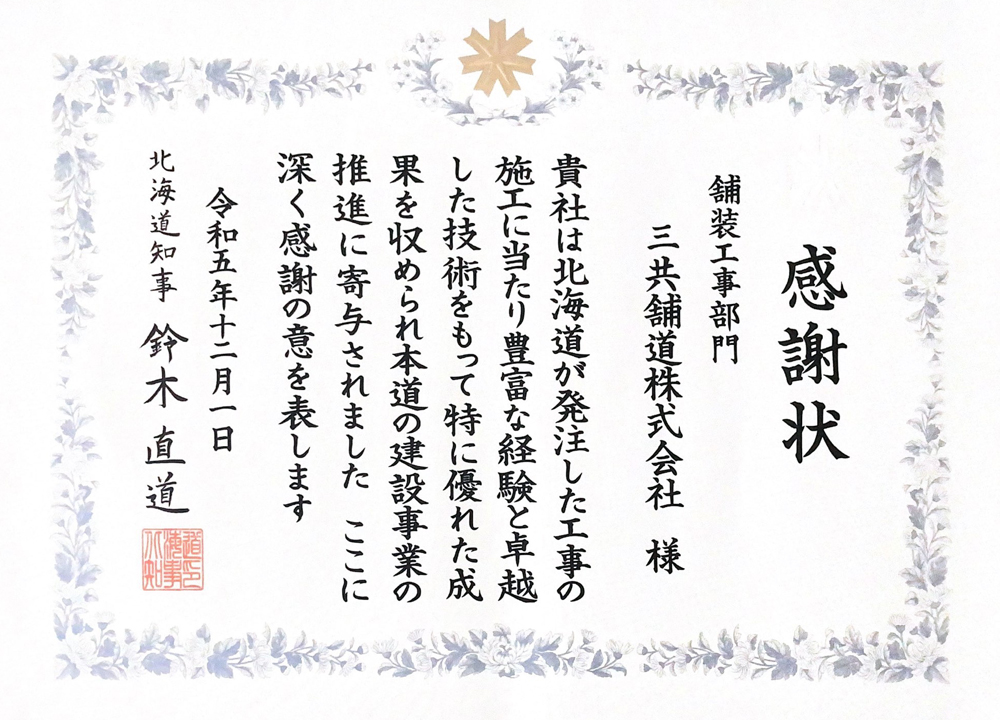 感謝状
舗装工事部門
三共舗道株式会社 様
貴社は北海道が発注した工事の
施工に当たり豊富な経験と卓越
した技術をもって特に優れた成
果を収められ本道の建設事業の
推進に寄与されました ここに
深く感謝の意を表します
令和五年十二月一日
北海道知事 鈴木直道
北海道知事之印